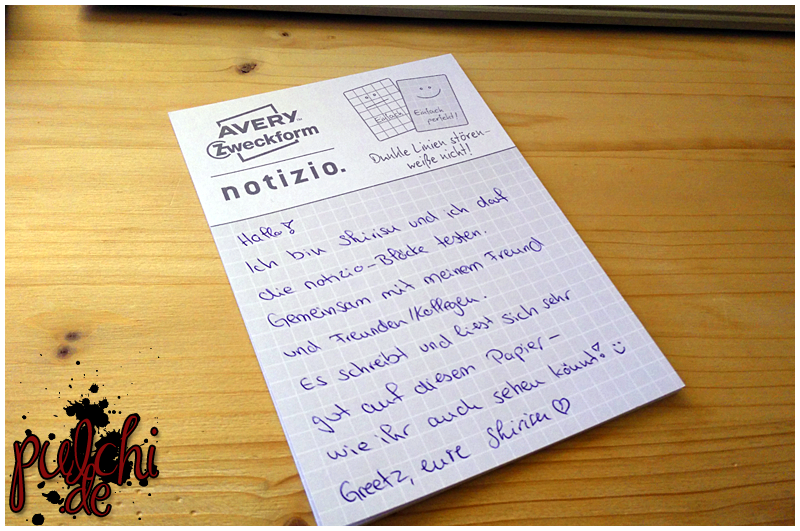 AVERY™
Zweckform
notizio.
Einfach
Einfach
perfekt!
Dunkle Linien stören-
weiße nicht!
Hallo!
Ich bin Shirisu und ich darf
die notizio-Blöcke testen.
Gemeinsam mit meinem Freund
und Freunden/Kollegen.
Es schreibt und liest sich sehr
gut auf diesem Papier-
wie ihr auch sehen könnt! :)
Greetz, eure Shirisu ♡
pulchi
.de